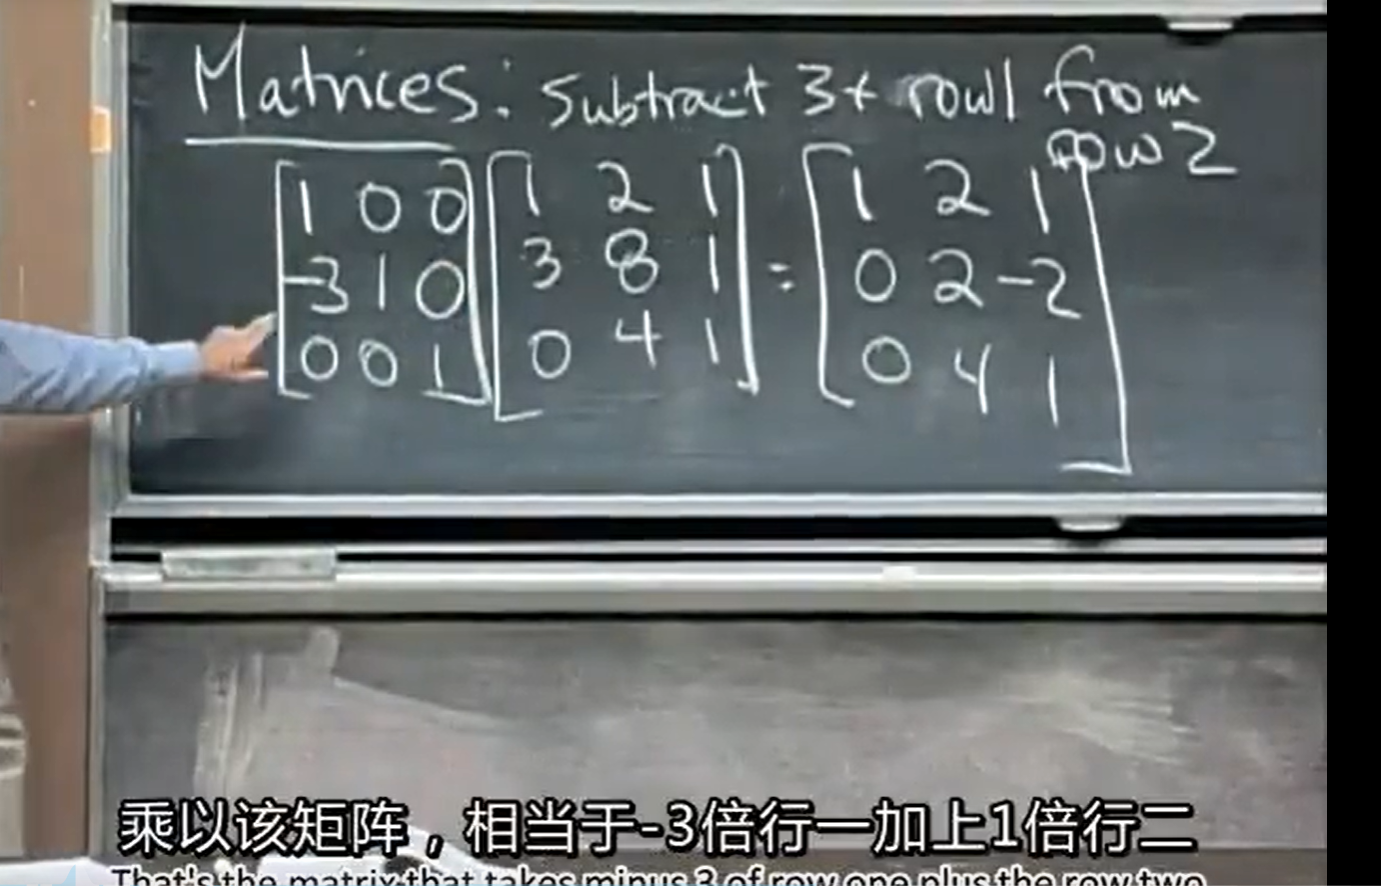 Matrices: Subtract 3x row1 from
row 2
[1 0 0] [1 2 1] = [1 2 1]
[-3 1 0] [3 8 1] [0 2 -2]
[0 0 1] [0 4 1] [0 4 1]
乘以该矩阵，相当于-3倍行一加上1倍行二
That's the matrix that takes minus 3 of row one plus the row two